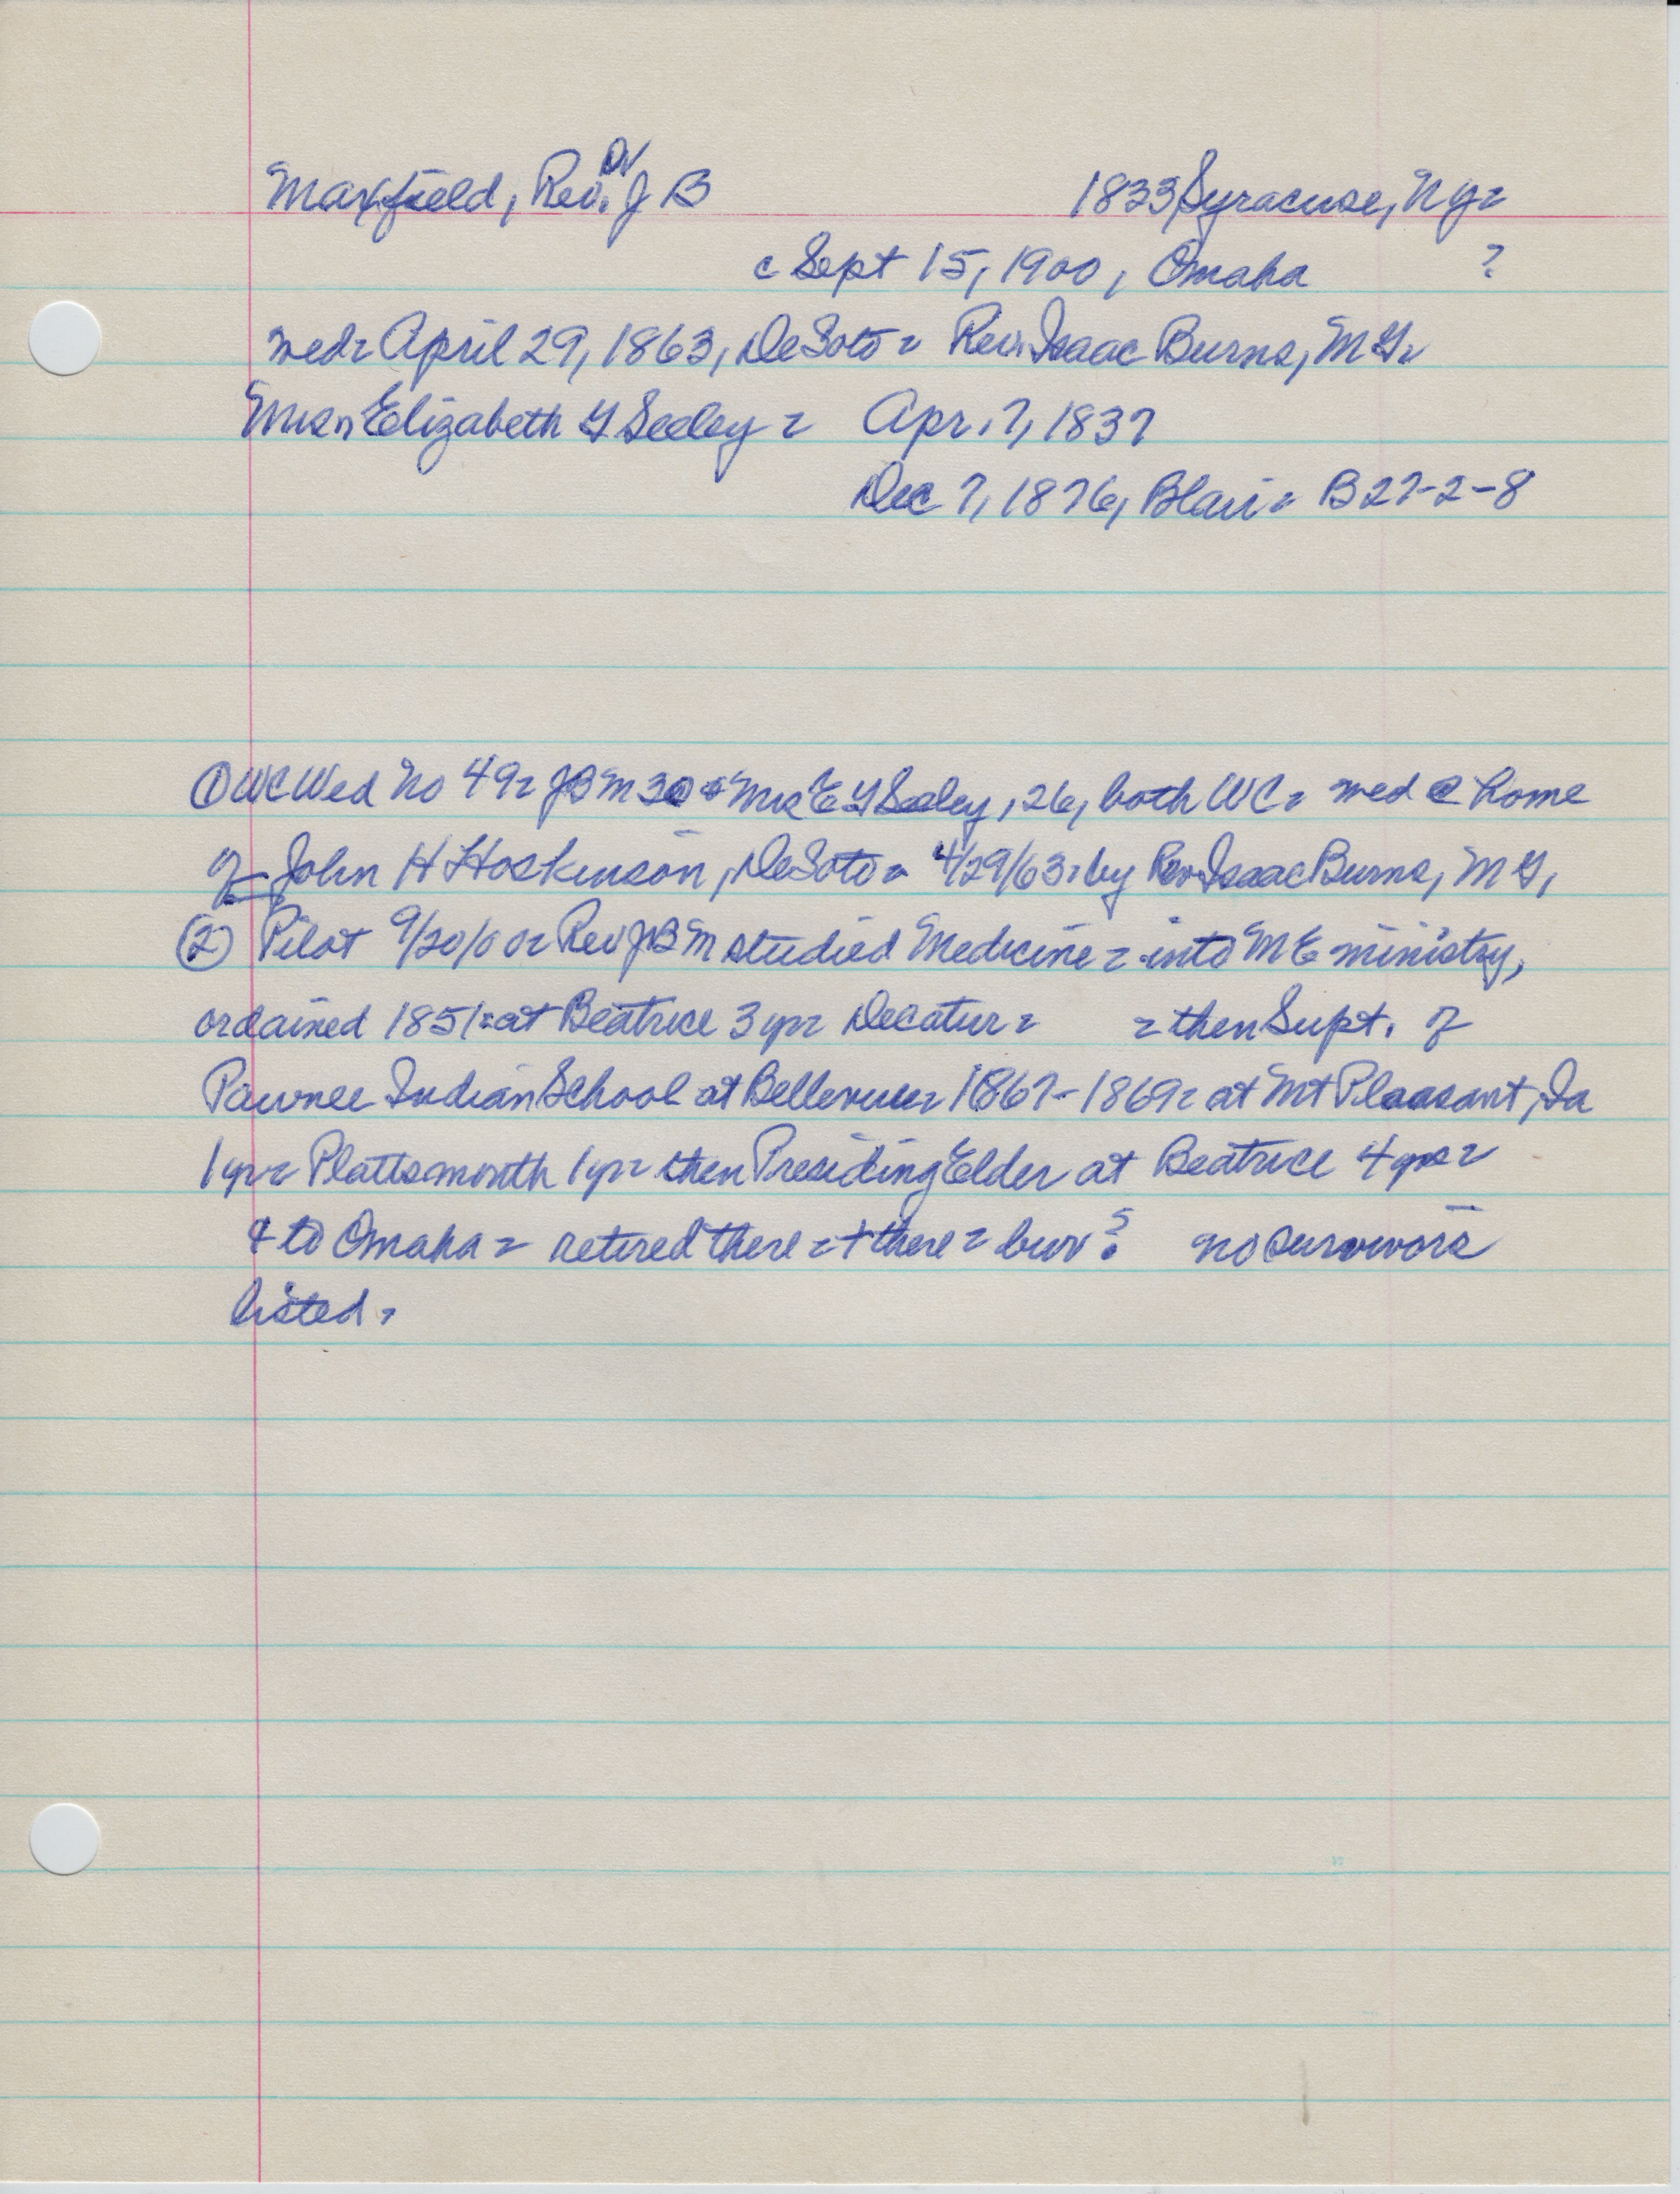 Maxfield, Rev. Dr J B 1833, Syracuse, NY=
c Sept 15, 1900, Omaha ?
wed= April 29, 1863, DeSoto = Rev. Isaac Burns, MG=
Elizabeth G Seeley = Apr. 7, 1837
Dec 7, 1876, Blair = B27-2-8
① WC Wed No 49= JBM 30 = E G Seeley, 26, both WC = wed @ home
of John H Hoskinson, DeSoto = 4/29/63 = by Rev Isaac Burns, MG,
② Pilot 9/20/00= Rev JBM studied Medicine = into ME ministry,
ordained 1851= at Beatrice 3 yr= Decatur = = then Supt. of
Pawnee Indian School at Bellevue= 1867-1869= at Mt Pleasant, Ia
1 yr= Plattsmouth 1 yr= then Presiding Elder at Beatrice 4 yrs=
& to Omaha = retired there = + there = bur ? no survivors
listed =